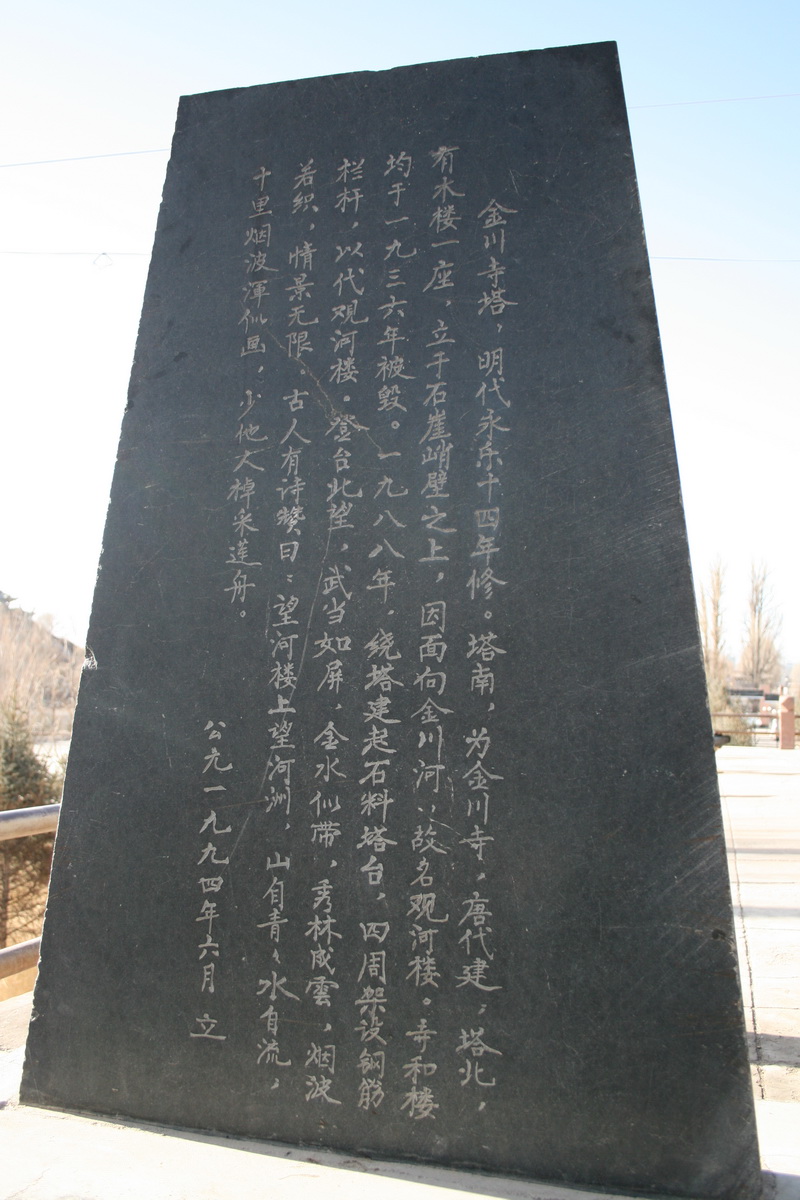 金川寺塔，明代永乐十四年修。塔南，为金川寺，唐代建，塔北，
有木楼一座，立于石崖峭壁之上，因面向金川河，故名观河楼。寺和楼
均于一九三六年被毁。一九八八年，绕塔建起石料塔台，四周架设钢筋
栏杆，以代观河楼。登台北望，武当如屏，金水似带，秀林成雲，烟波
若织，情景无限。古人有诗赞曰：望河楼上望河洲，山自青青水自流，
十里烟波渾似画，少他大棹采莲舟。
公元一九九四年六月 立